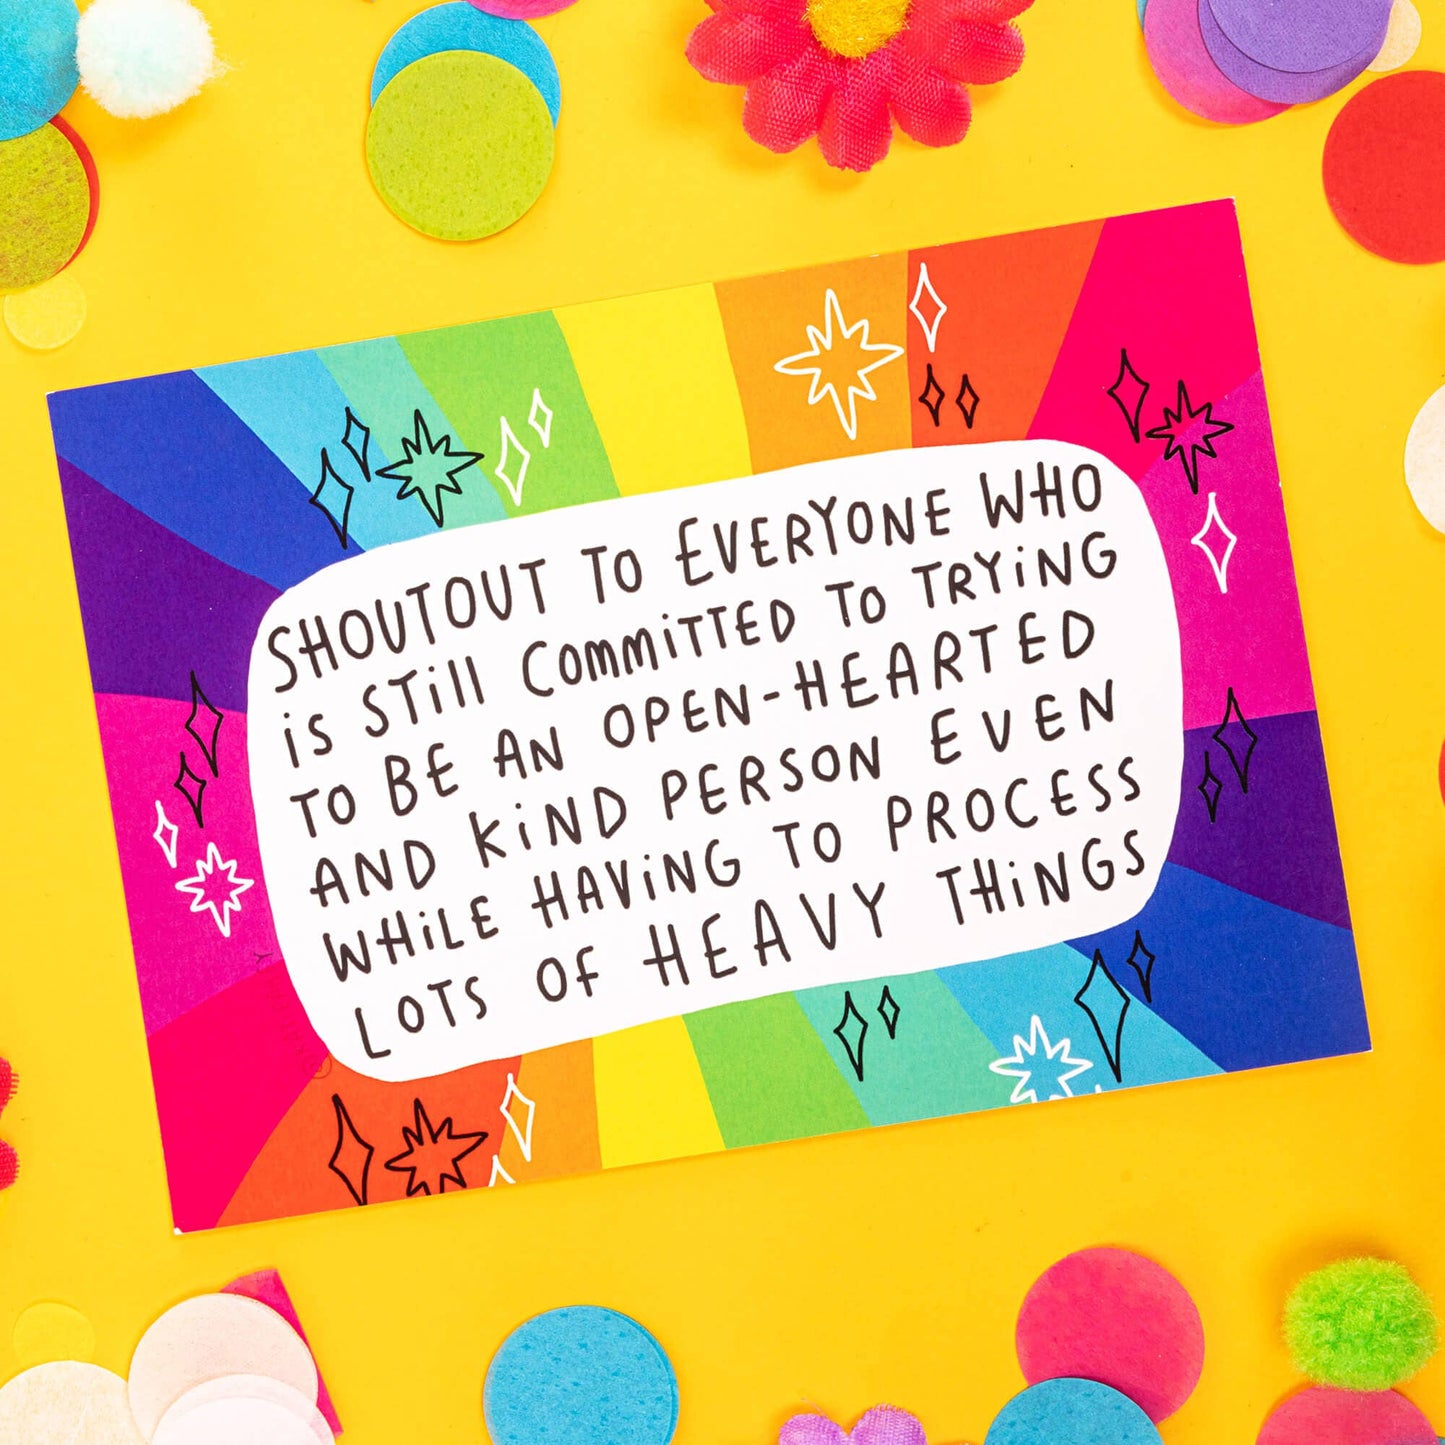 SHOUTOUT TO EVERYONE WHO
iS STiLL COMMiTTED TO TRYiNG
TO BE AN OPEN-HEARTED
AND KiND PERSON EVEN
WHILE HAViNG TO PROCESS
LOTS OF HEAVY THiNGS